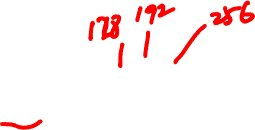 128 192 256